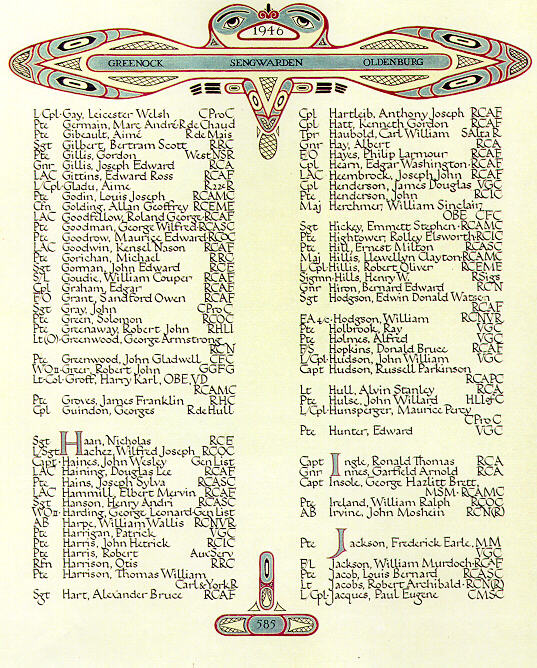 1946
GREENOCK SENGWARDEN OLDENBURG
L/Cpl·Gay, Leicester Welsh CProC
Pte Germain, Marc André·R de Chaud
Pte Gibeault, Aimé R de Mais
Sgt Gilbert, Bertram Scott RRC
Pte Gillis, Gordon West NSR
Gnr Gillis, Joseph Edward RCA
LAC Gittins, Edward Ross RCAF
L/Cpl·Gladu, Aime R22eR
Pte Godin, Louis Joseph RCAMC
Cfn Golding, Allan Geoffrey RCEME
LAC Goodfellow, Roland George·RCAF
Pte Goodman, George Wilfred·RCASC
Pte Goodrow, Maurice Edward·RCOC
LAC Goodwin, Kensel Nason RCAF
Pte Gorichan, Michael RRC
Sgt Gorman, John Edward RCE
S/L Goudie, William Couper RCAF
Cpl Graham, Edgar RCAF
F/O Grant, Sandford Owen RCAF
Sgt Gray, John CProC
Pte Green, Solomon RCOC
Pte Greenaway, Robert John RHLI
Lt(O)·Greenwood, George Armstrong
RCN
Pte Greenwood, John Gladwell CFC
WOII·Greer, Robert John GGFG
Lt·Col·Groff, Harry Karl, OBE, VD
RCAMC
Pte Groves, James Franklin RHC
Cpl Guindon, Georges R de Hull
Sgt Haan, Nicholas RCE
L/Sgt Hachez, Wilfred Joseph RCOC
Capt·Haines, John Wesley Gen List
LAC Haining, Douglas Lee RCAF
Pte Hains, Joseph Sylva RCASC
LAC Hammill, Elbert Mervin RCAF
Sgt Hanson, Henry Andri RCASC
WOII·Harding, George Leonard·Gen List
AB Harpe, William Wallis RCNVR
Pte Harrigan, Patrick VGC
Pte Harris, John Hetrick RCIC
Pte Harris, Robert AuxServ
Rfn Harrison, Otis RRC
Pte Harrison, Thomas William
Carl&YorkR
Sgt Hart, Alexander Bruce RCAF
Cpl Hartleib, Anthony Joseph RCAF
Cpl Hatt, Kenneth Gordon RCAF
Tpr Haubold, Carl William SAltaR
Gnr Hay, Albert RCA
F/O Hayes, Philip Larmour RCAF
Cpl Hearn, Edgar Washington·RCAF
LAC Heembrock, Joseph John RCAF
Cpl Henderson, James Douglas VGC
Pte Henderson, John RCIC
Maj Herchmer, William Sinclair
OBE CFC
Sgt Hickey, Emmett Stephen·RCAMC
Pte Hightower, Rolley Elsworth·RCIC
Pte Hill, Ernest Milton RCASC
Maj Hillis, Llewellyn Clayton·RCAMC
L/Cpl·Hillis, Robert Oliver RCEME
Sigmn·Hills, Henry W. RSigs
Gnr Hiron, Bernard Edward RCN
Sgt Hodgson, Edwin Donald Watson
RCAF
EA4c·Hodgson, William RCNVR
Pte Holbrook, Ray VGC
Pte Holmes, Alfred VGC
F/S Hopkins, Donald Bruce RCAF
L/Cpl·Hudson, John William VGC
Capt Hudson, Russell Parkinson
RCAPC
Lt Hull, Alvin Stanley RCA
Pte Hulse, John Willard HLIofC
L/Cpl·Hunsperger, Maurice Percy
CProC
Pte Hunter, Edward VGC
Capt Ingle, Ronald Thomas RCA
Gnr Innes, Garfield Arnold RCA
Capt Insole, George Hazlitt Brett,
MSM·RCAMC
Pte Ireland, William Ralph RCOC
AB Irvine, John Moshein RCN(R)
Pte Jackson, Frederick Earle, MM
VGC
F/L Jackson, William Murdoch·RCAF
Pte Jacob, Louis Bernard RCASC
Lt Jacobs, Robert Archibald·RCN(R)
L/Cpl·Jacques, Paul Eugene CMSC
585